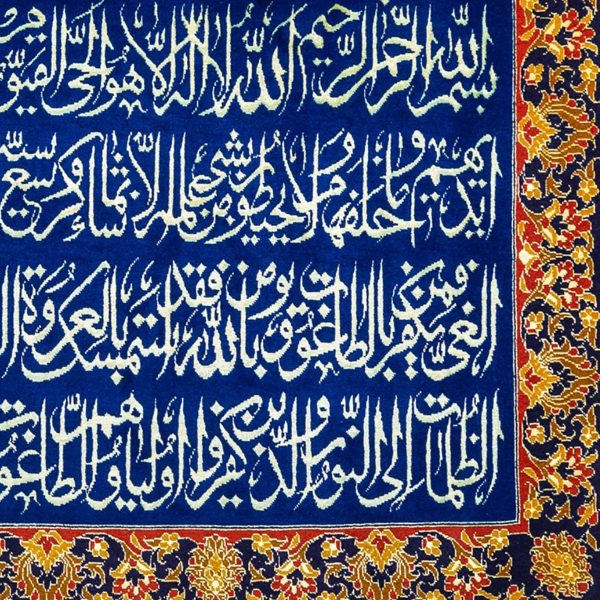 بسم الله الرحمن الرحيم الله لا اله الا هو الحي القيو
ايديهم وما خلفهم ولا يحيطون بشيء من علمه الا بما شاء وسع
الغي فمن يكفر بالطاغوت ويومن بالله فقد استمسك بالعروة
الظلمات الى النور والذين كفروا اولياوهم الطاغوت